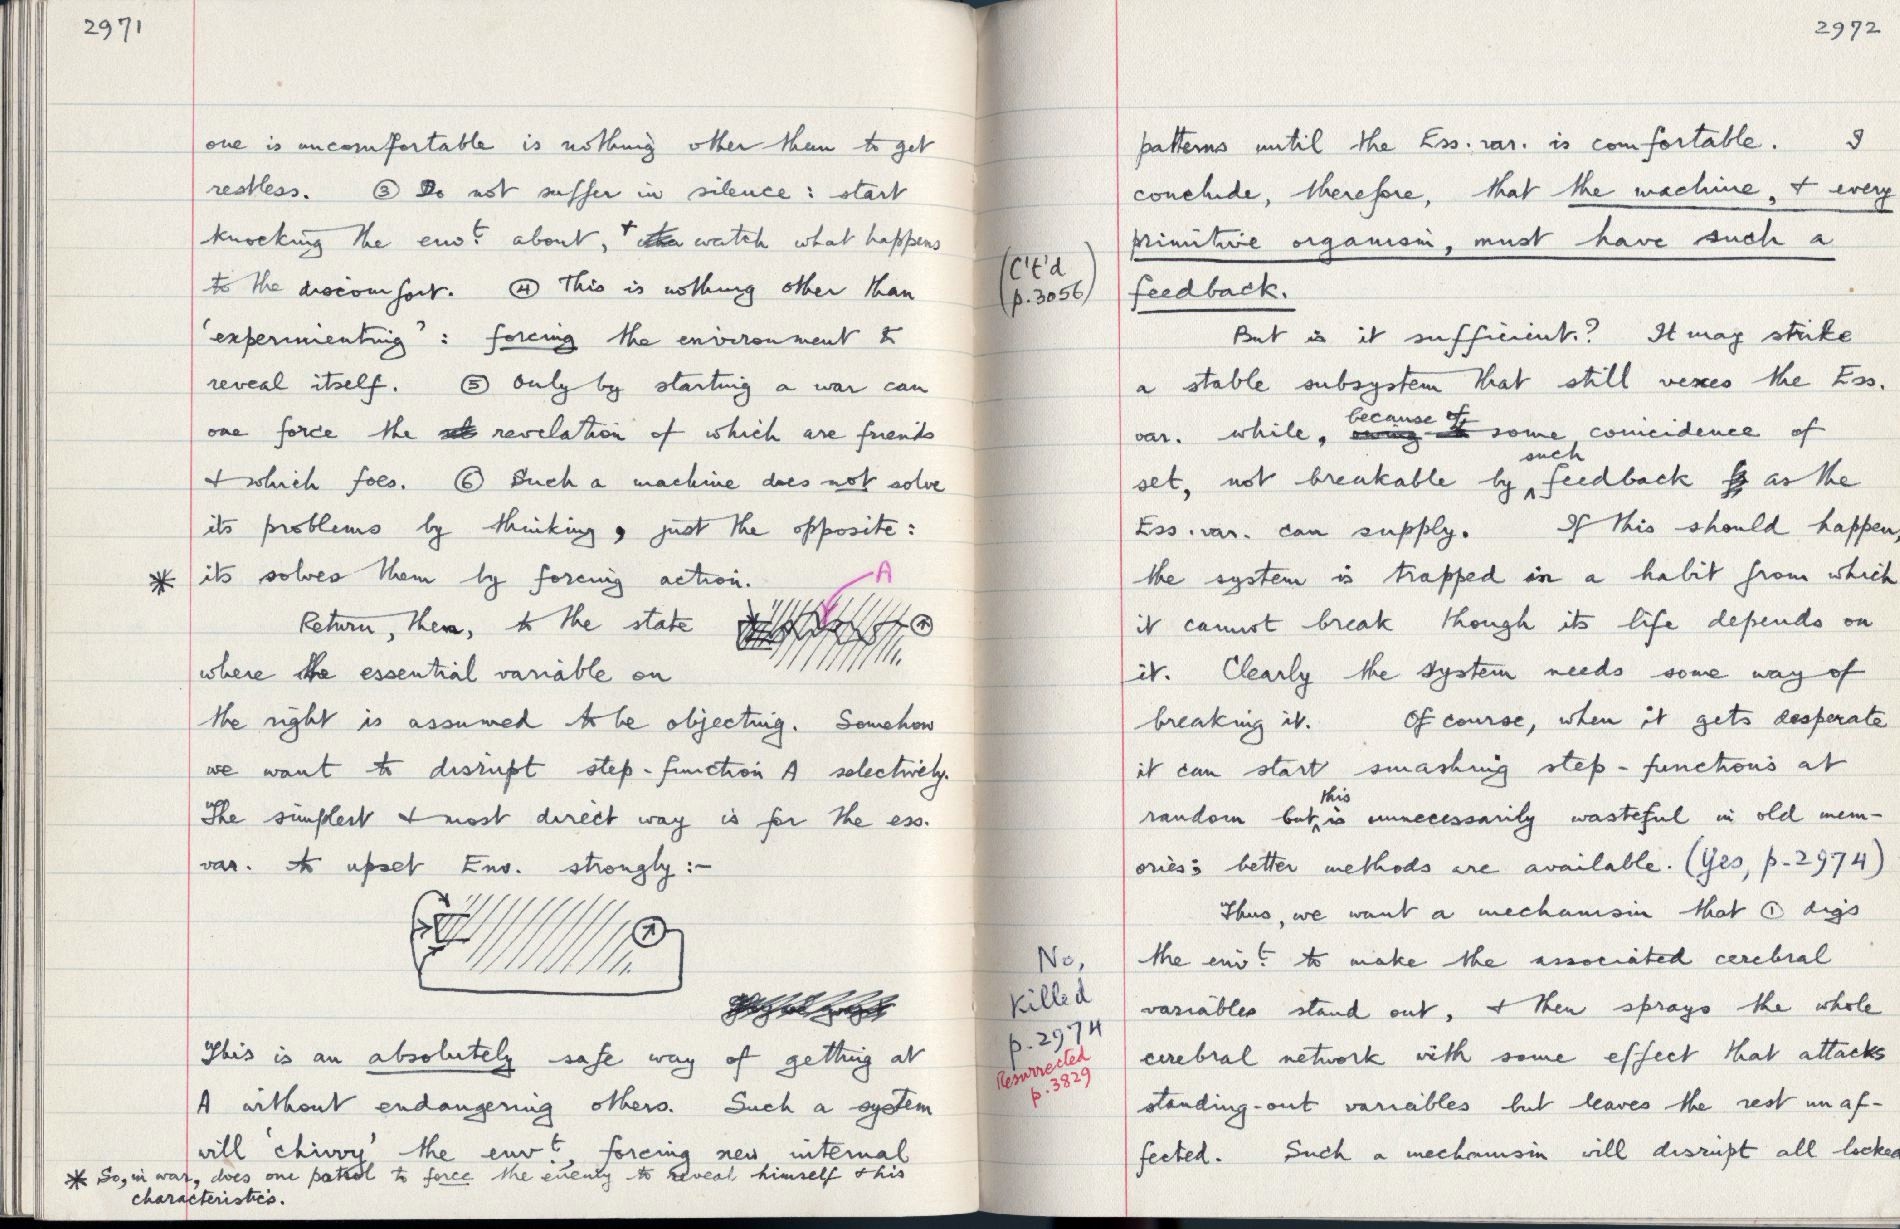 2971
one is uncomfortable is nothing other than to get
restless. ③ Do not suffer in silence : start
knocking the env.t about, + watch what happens
to the discomfort. ④ This is nothing other than
'experimenting' : forcing the environment to
reveal itself. ⑤ Only by starting a war can
one force the revelation of which are friends
+ which foes. ⑥ Such a machine does not solve
its problems by thinking, just the opposite :
* its solves them by forcing action.
A
Return, then, to the state
where the essential variable on
the right is assumed to be objecting. Somehow
we want to disrupt step-function A selectively.
The simplest + most direct way is for the ess.
var. to upset Env. strongly :-
This is an absolutely safe way of getting at
A without endangering others. Such a system
will 'chivvy' the env.t, forcing new internal
* So, in war, does one patrol to force the enemy to reveal himself + his
characteristics.
2972
patterns until the Ess. var. is comfortable. I
conclude, therefore, that the machine, + every
primitive organism, must have such a
(C't'd
p.3056)
feedback.
But is it sufficient.? It may strike
a stable subsystem that still vexes the Ess.
var. while, because of some coincidence of
set, not breakable by such feedback as the
Ess. var. can supply. If this should happen,
the system is trapped in a habit from which
it cannot break though its life depends on
it. Clearly the system needs some way of
breaking it. Of course, when it gets desperate
it can start smashing step-functions at
random but this is unnecessarily wasteful in old mem-
ories; better methods are available. (Yes, p.2974)
Thus, we want a mechanism that ① digs
the env.t to make the associated cerebral
variables stand out, + then sprays the whole
cerebral network with some effect that attacks
standing-out variables but leaves the rest unaf-
fected. Such a mechanism will disrupt all locked
No,
Killed
p.2974
Resurrected
p.3829